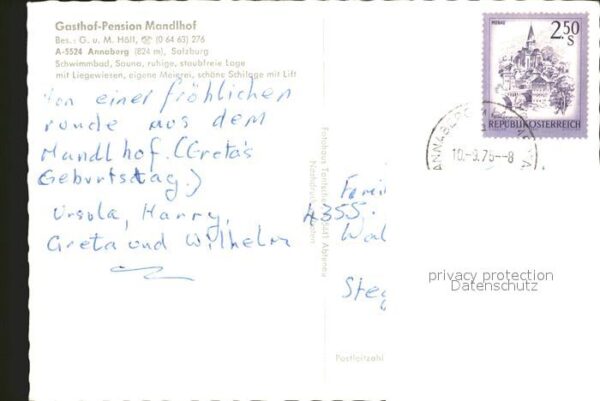 Gasthof-Pension Mandlhof
Bes.: G. u. M. Höll, ☎ (0 64 63) 276
A-5524 Annaberg (824 m), Salzburg
Schwimmbad, Sauna, ruhige, staubfreie Lage
mit Liegewiesen, eigene Meierei, schöne Schilage mit Lift
Von einer fröhlichen
runde aus dem
Mandlhof. (Greta's
Geburtstag.)
Ursula, Harry,
Greta und Wilhelm
Nachdruck verboten
MURAU
2.50
S
REPUBLIK ÖSTERREICH
ANNABERG
10.-9.75--8
Fami
4355.
Wal
Ste
privacy protection
Datenschutz
Postleitzahl